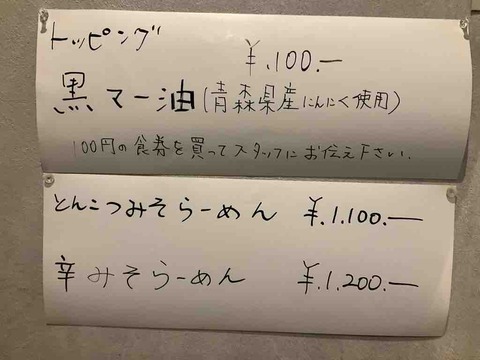 トッピング
¥.100.—
黒マー油(青森県産にんにく使用)
100円の食券を買ってスタッフにお伝え下さい.
とんこつみそらーめん ¥.1.100.—
辛みそらーめん ¥.1.200.—